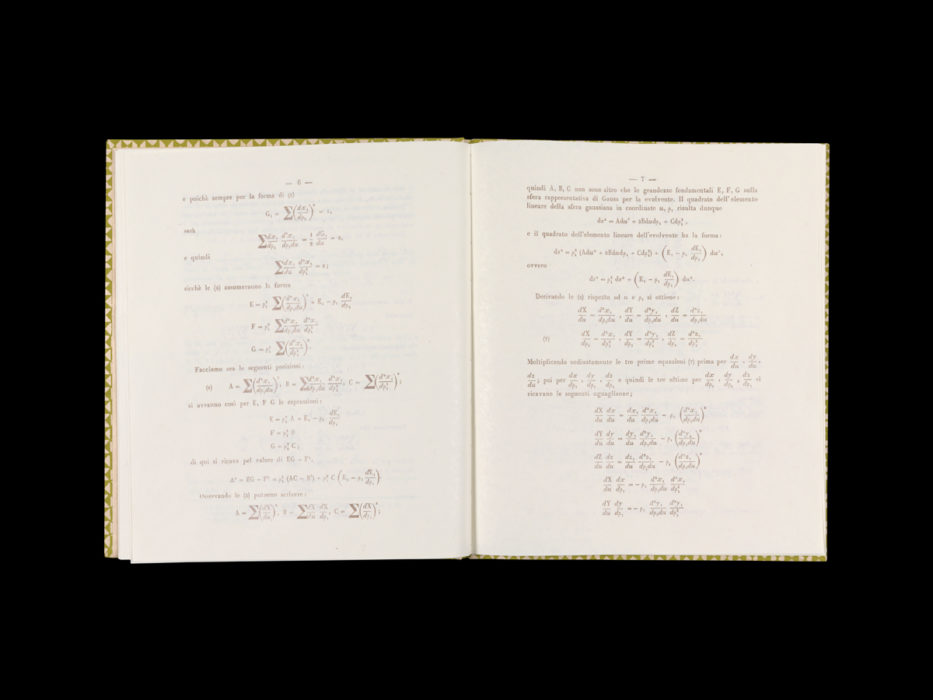 — 6 —
e poichè sempre per la forma di (1)
G₁ = ∑(dx₁/dρ₁)² = 1,
sarà
∑ dx₁/dρ₁ d²x₁/dρ₁du = 1/2 dG₁/du = 0,
e quindi
∑ dx₁/du d²x₁/dρ₁² = 0;
sicchè le (3) assumeranno la forma
E = ρ₁² ∑(d²x₁/dρ₁du)² + E₁ − ρ₁ dE₁/dρ₁
F = ρ₁² ∑ d²x₁/dρ₁du d²x₁/dρ₁²
G = ρ₁² ∑(d²x₁/dρ₁²)².
Facciamo ora le seguenti posizioni:
A = ∑(d²x₁/dρ₁du)², B = ∑ d²x₁/dρ₁du d²x₁/dρ₁², C = ∑(d²x₁/dρ₁²)²;
si avranno così per E, F G le espressioni:
E = ρ₁² A + E₁ − ρ₁ dE₁/dρ₁
F = ρ₁² B
G = ρ₁² C;
di qui si ricava pel valore di EG − F²,
Δ² = EG − F² = ρ₁⁴ (AC − B²) + ρ₁² C (E₁ − ρ₁ dE₁/dρ₁)
Osservando le (2) potremo scrivere:
A = ∑(dX/du)², B = ∑ dX/du dX/dρ₁, C = ∑(dX/dρ₁)²;
— 7 —
quindi A, B, C non sono altro che le grandezze fondamentali E, F, G sulla
sfera rappresentativa di Gauss per la evolvente. Il quadrato dell'elemento
lineare della sfera gaussiana in coordinate u, ρ₁ risulta dunque
dσ² = Adu² + 2Bdudρ₁ + Cdρ₁²,
e il quadrato dell'elemento lineare dell'evolvente ha la forma:
ds² = ρ₁² (Adu² + 2Bdudρ₁ + Cdρ₁²) + (E₁ − ρ₁ dE₁/dρ₁) du²,
ovvero
ds² = ρ₁² dσ² + (E₁ − ρ₁ dE₁/dρ₁) du².
Derivando le (2) rispetto ad u e ρ₁ si ottiene:
dX/du = d²x₁/dρ₁du , dY/du = d²y₁/dρ₁du , dZ/du = d²z₁/dρ₁du
(7) dX/dρ₁ = d²x₁/dρ₁² , dY/dρ₁ = d²y₁/dρ₁² , dZ/dρ₁ = d²z₁/dρ₁²
Moltiplicando ordinatamente le tre prime equazioni (7) prima per dx/du , dy/du ,
dz/du ; poi per dx/dρ₁ , dy/dρ₁ , dz/dρ₁ e quindi le tre ultime per dx/dρ₁ , dy/dρ₁ , dz/dρ₁ si
ricavano le seguenti uguaglianze;
dX/du dx/du = dx₁/du d²x₁/dρ₁du − ρ₁ (d²x₁/dρ₁du)²
dY/du dy/du = dy₁/du d²y₁/dρ₁du − ρ₁ (d²y₁/dρ₁du)²
dZ/du dz/du = dz₁/du d²z₁/dρ₁du − ρ₁ (d²z₁/dρ₁du)²
dX/du dx/dρ₁ = − ρ₁ d²x₁/dρ₁du d²x₁/dρ₁²
dY/du dy/dρ₁ = − ρ₁ d²y₁/dρ₁du d²y₁/dρ₁²